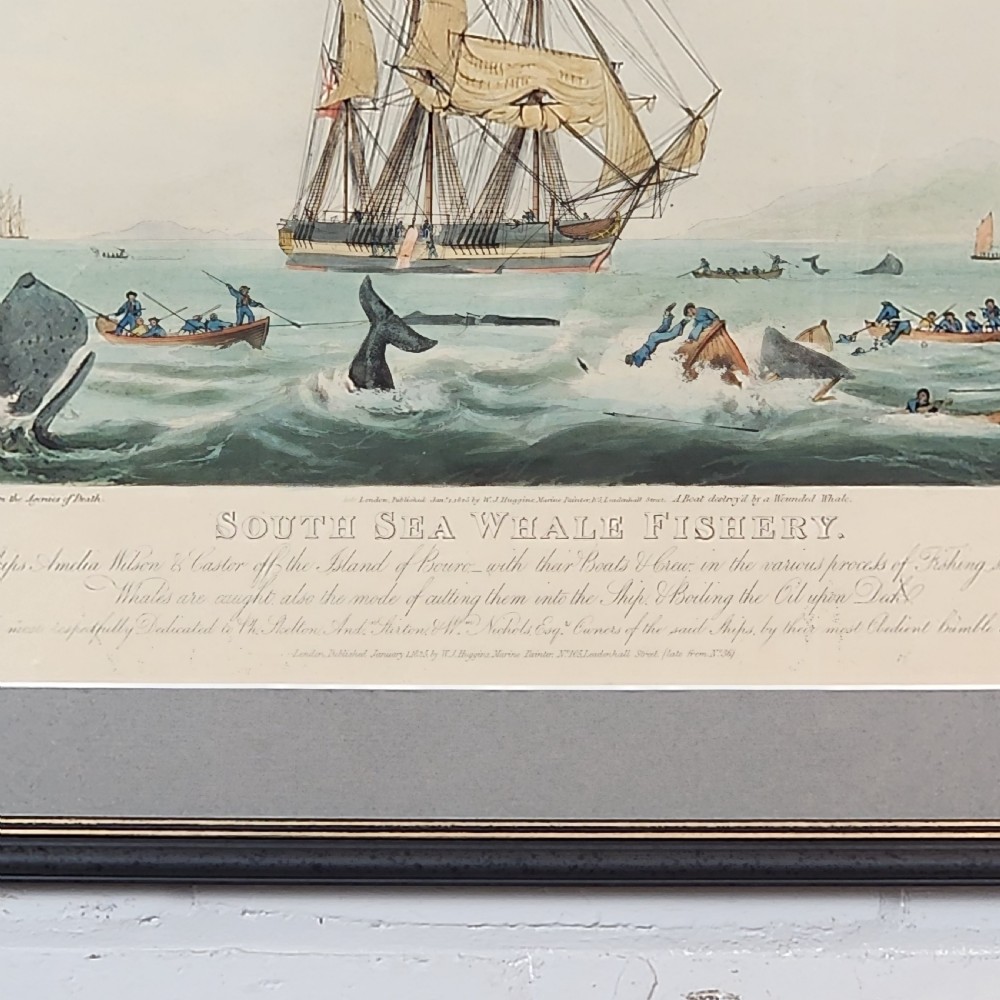 in the Agonies of Death.
London, Published Jany. 1, 1825 by W. J. Huggins, Marine Painter, 105, Leadenhall Street.
A Boat destroy'd by a Wounded Whale.
SOUTH SEA WHALE FISHERY.
Ships Amelia Wilson & Castor off the Island of Bouro, with their Boats & Crew, in the various process of Fishing,
Whales are caught, also the mode of cutting them into the Ship, & Boiling the Oil upon Deck
most respectfully Dedicated to Skelton, And. Stirton, & Wm. Nichols Esqrs. Owners of the said Ships, by their most Obedient humble
London, Published January 1, 1825, by W. J. Huggins, Marine Painter, No. 105, Leadenhall Street, (late from No. 36)